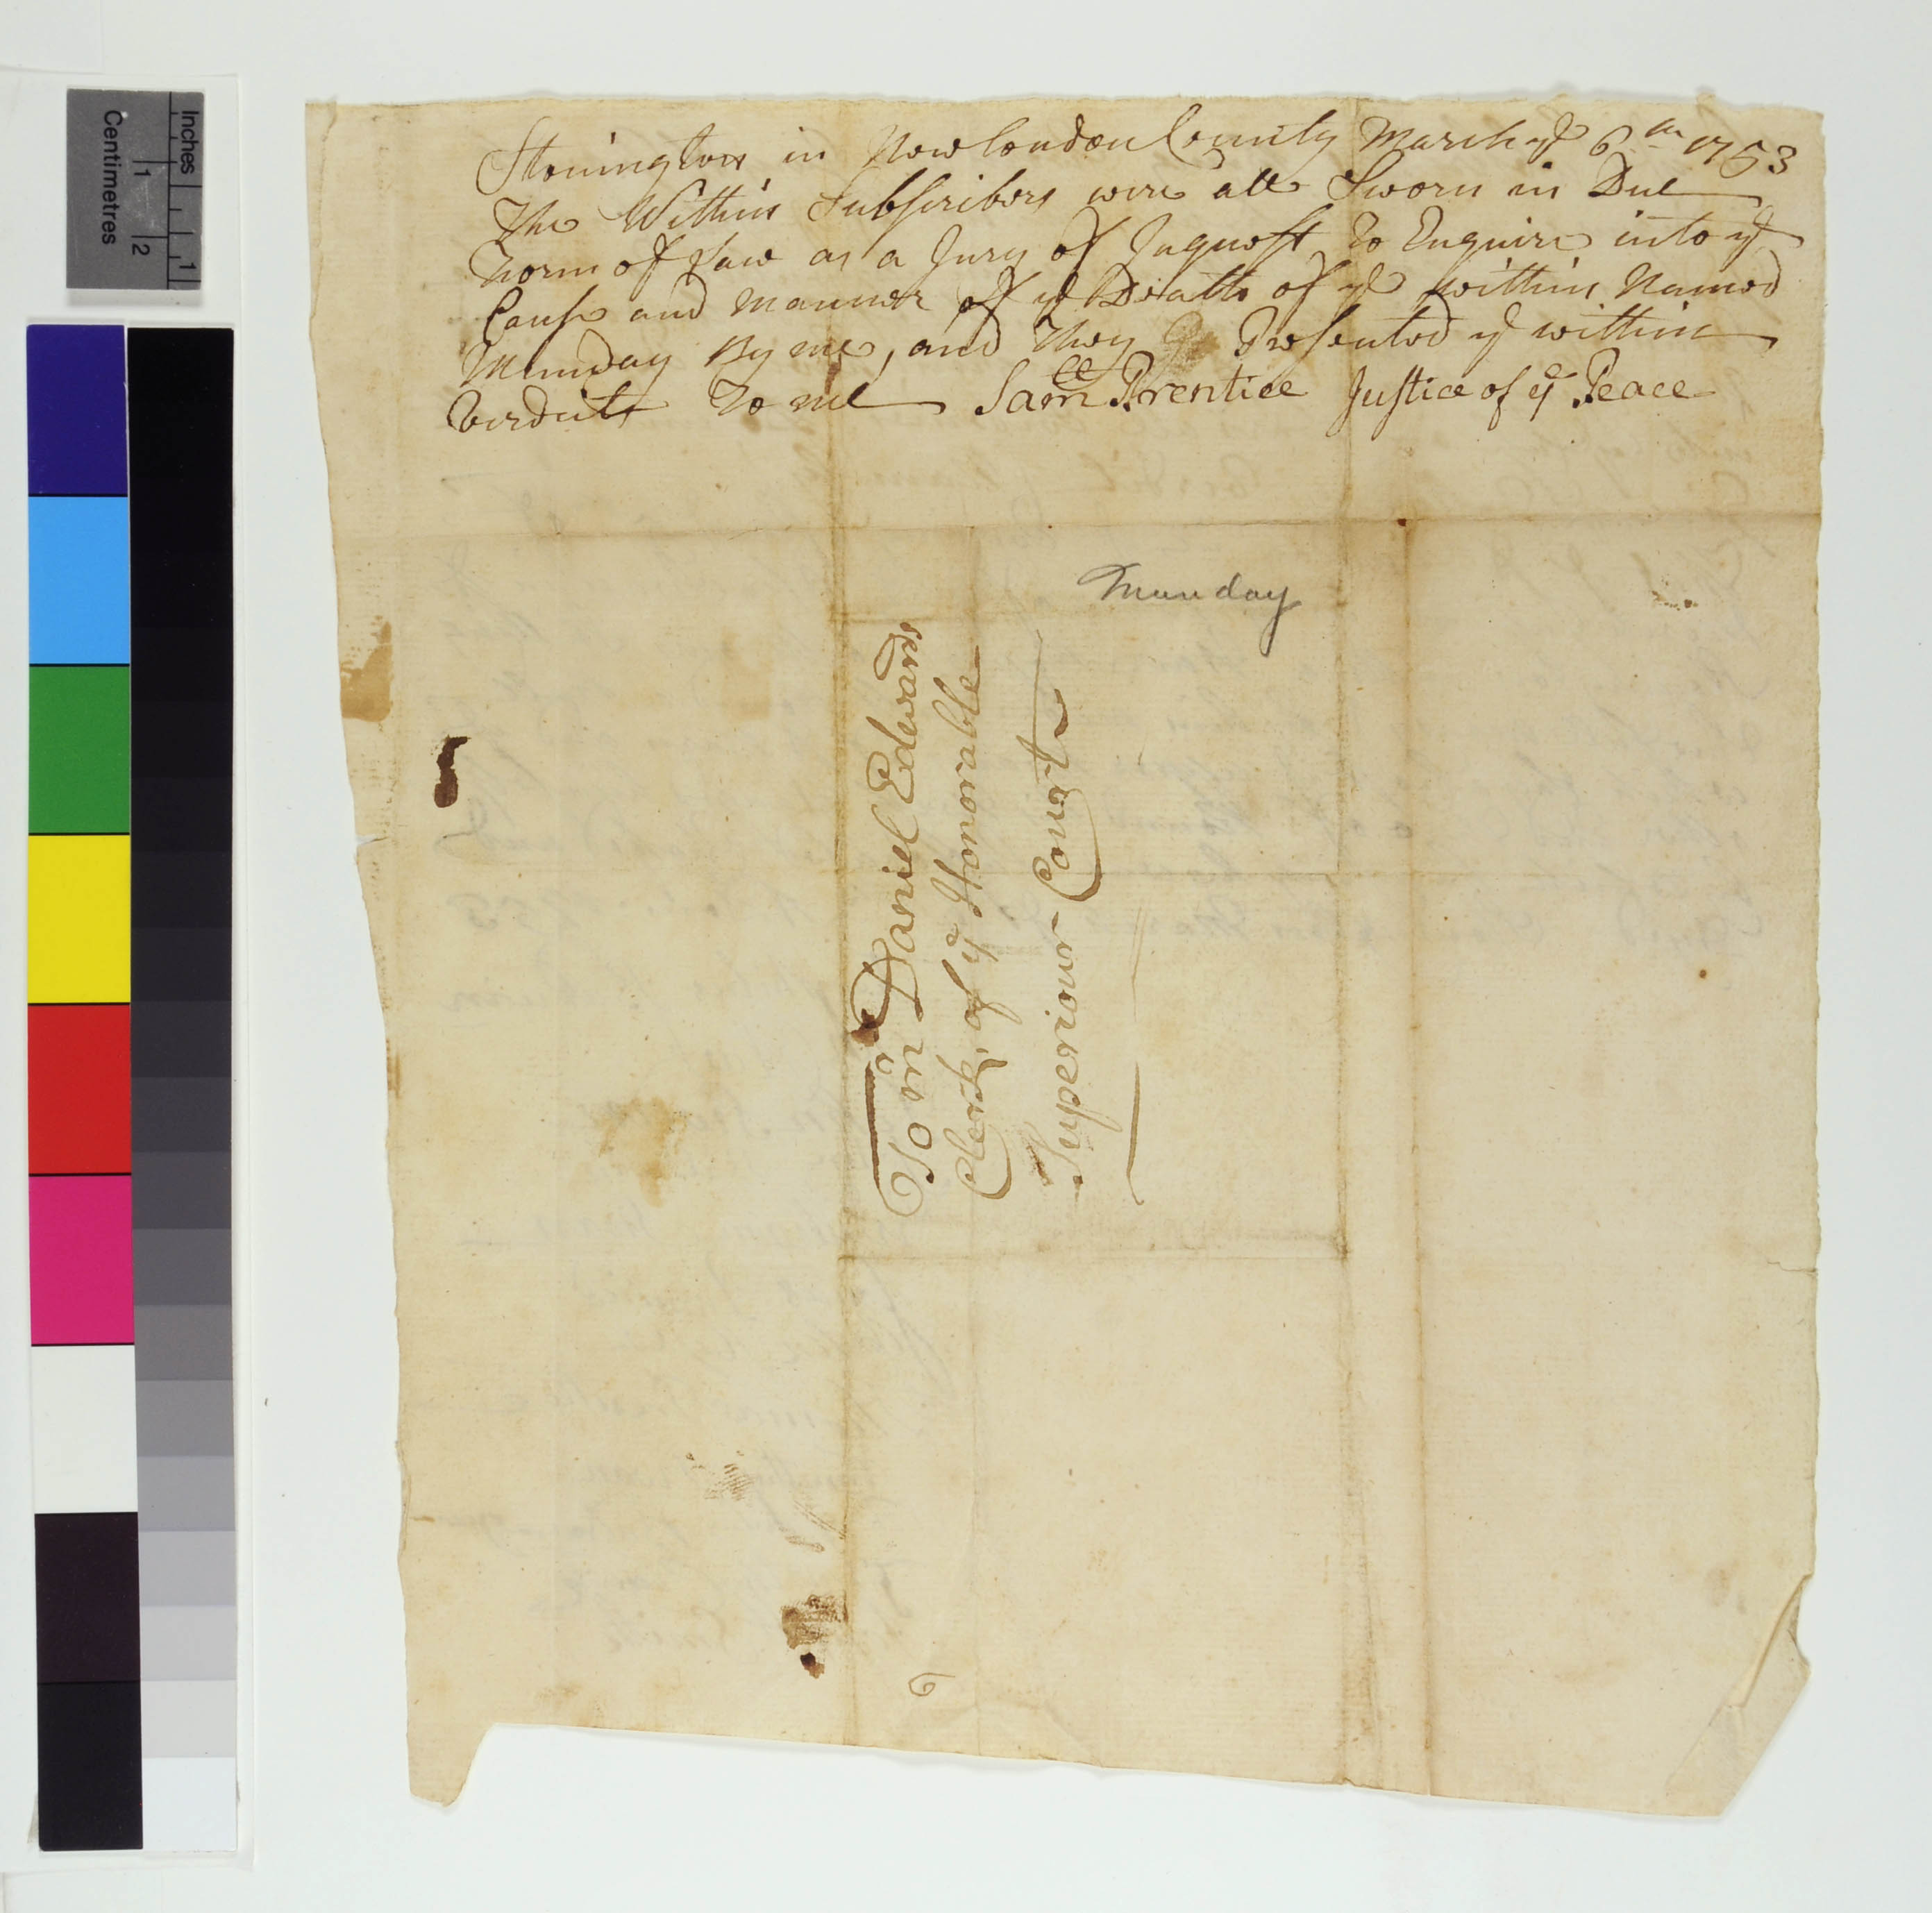 Stonington in New london County March yᵉ 6ᵗʰ 1753
The Within Subscribers were all Sworn in Due
Form of Law as a Jury of Inquest To Enquire into yᵉ
Cause and manner of yᵉ Death of yᵉ within Named
Munday By me, and They Presented yᵉ within
Verdict To me Samˡˡ Prentice Justice of yᵉ Peace
Munday
To mʳ Daniel Edwards
Clerk of yᵉ Honorable
Superiour Court
6
Inches
1
Centimetres
1
2